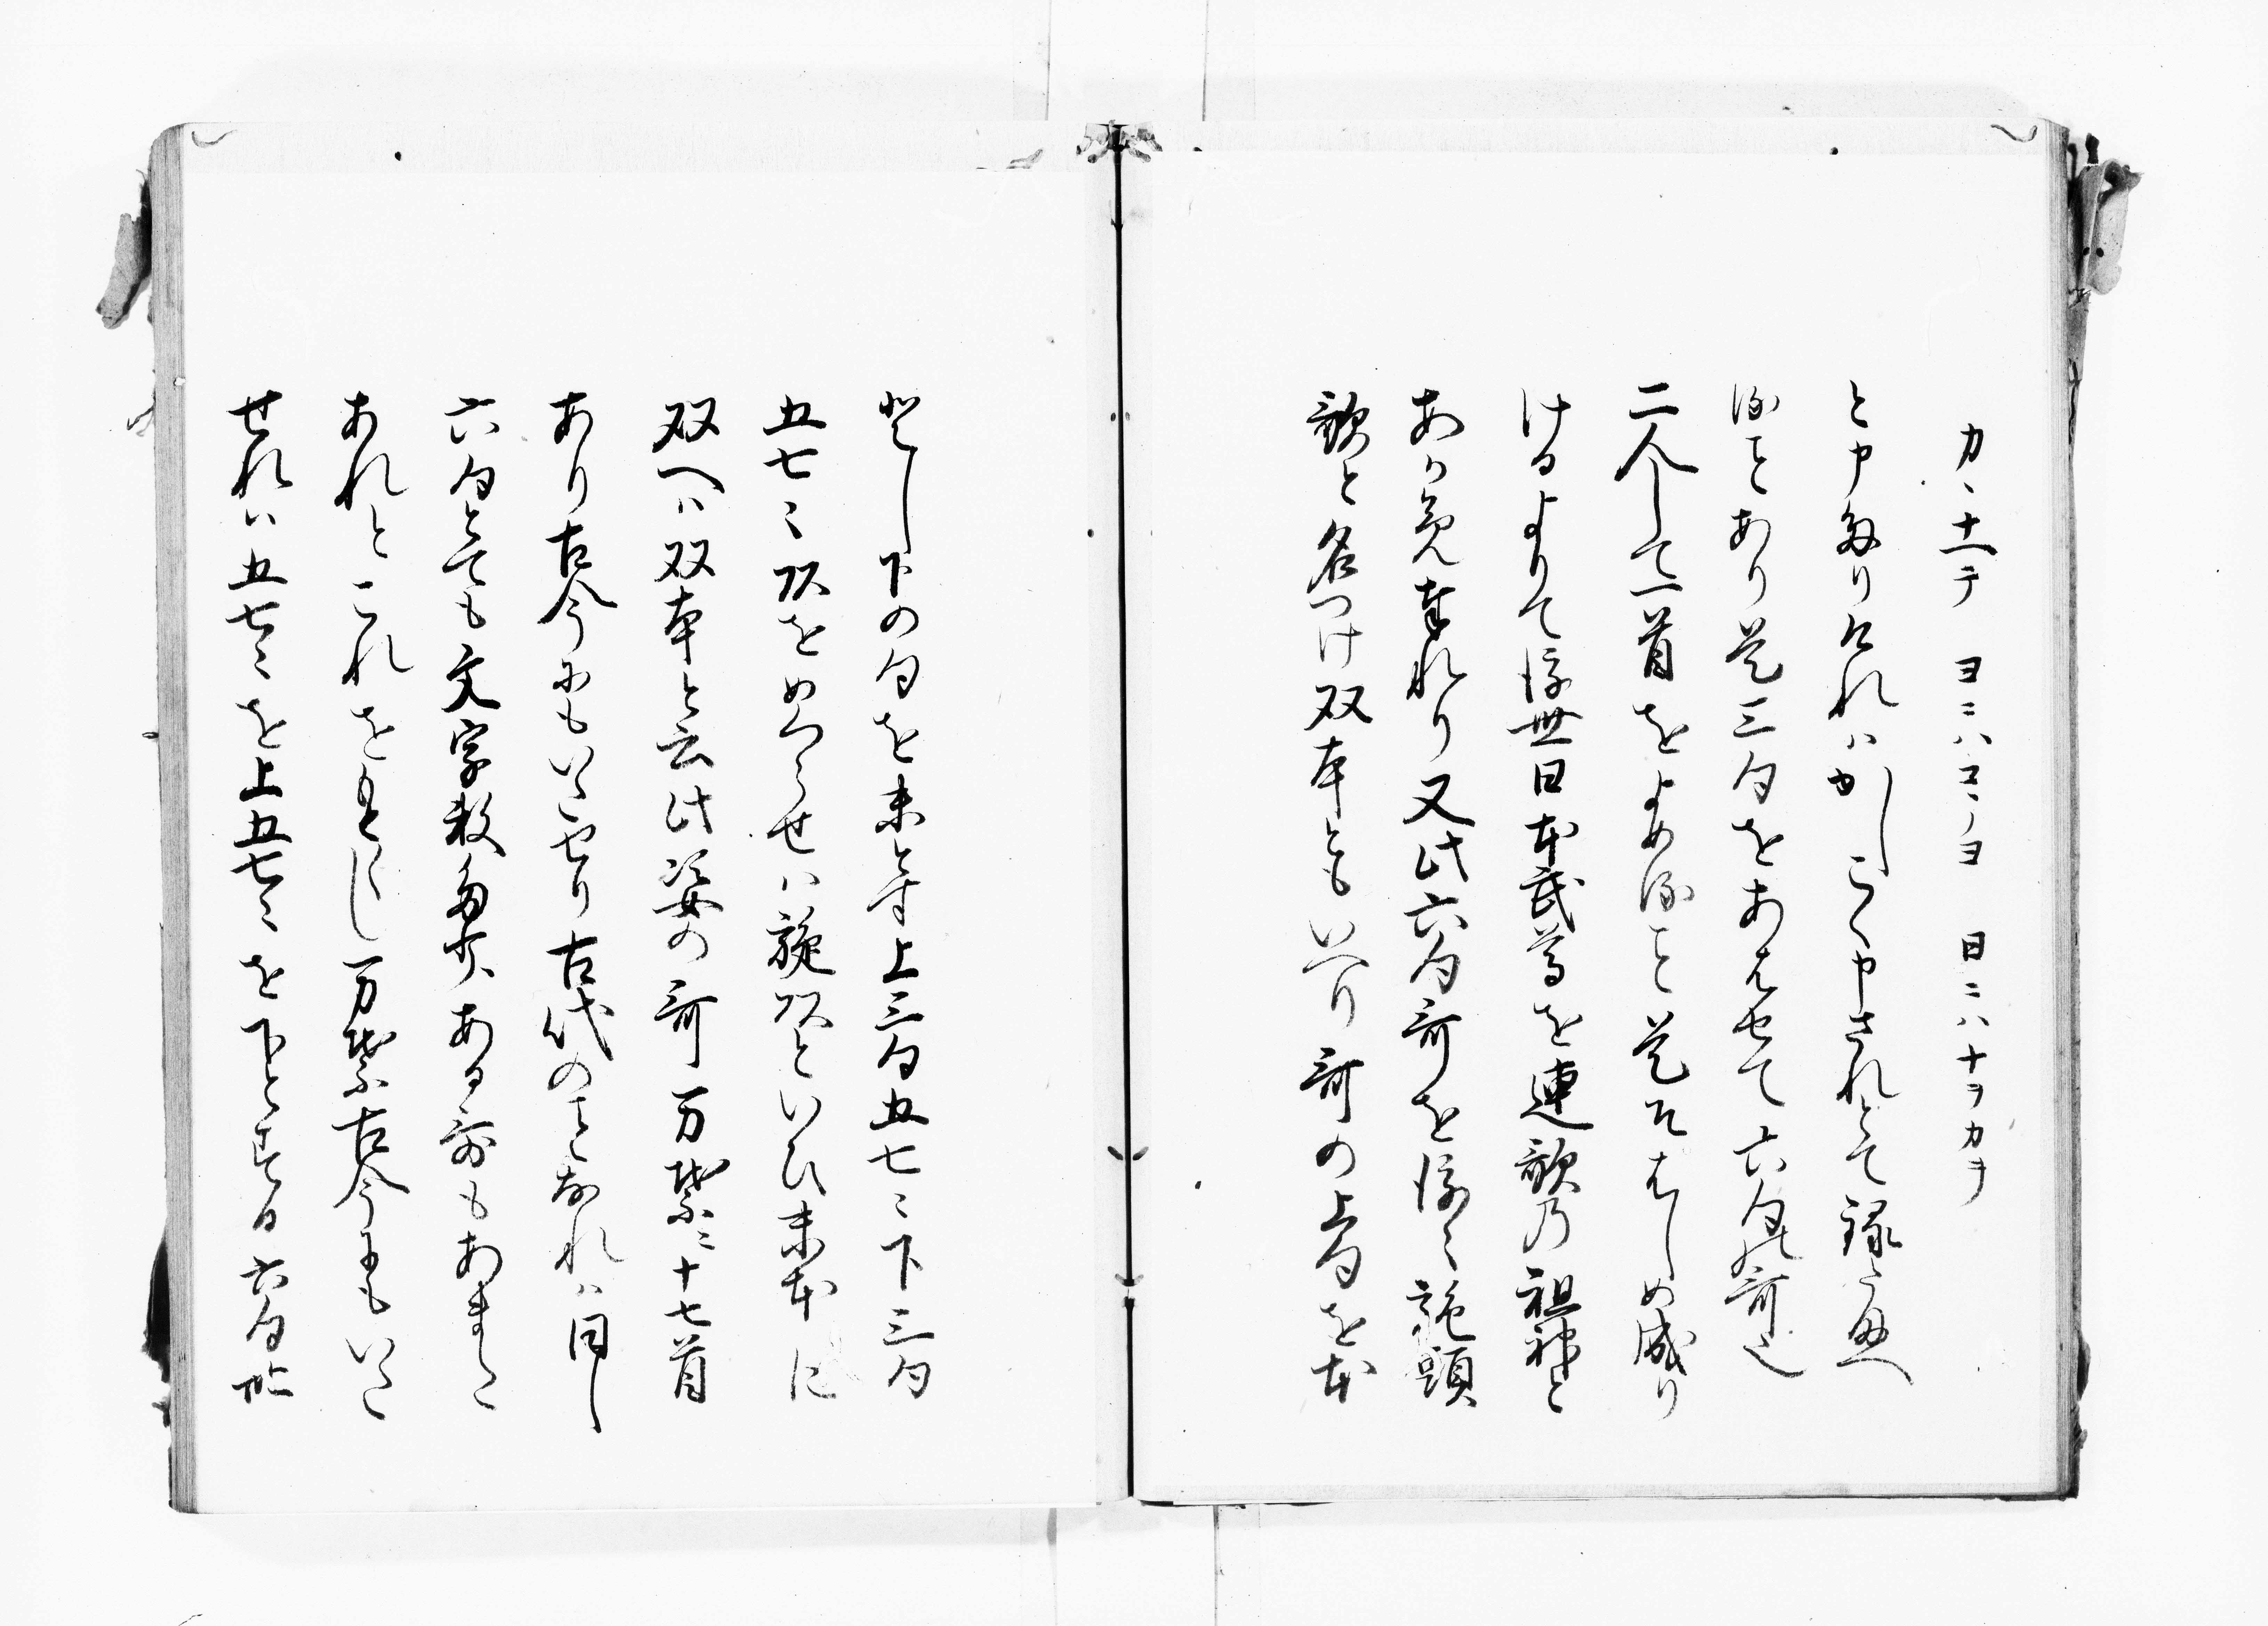 カヽナヘテ　ヨニハコヽノヨ　日ニハトヲカヲ
と申たりけれはかしこく申されとて禄を給へ
ることあり是三句をあはせて六句の哥也
二人して一首をよめること是そはしめ成り
けるよりて後世日本武尊を連歌乃祖神と
あかめ来れり又此六句哥を後に旋頭
歌と名つけ双本ともいへり哥の上句を本
とし下の句を末とす上三句五七〻下三句
五七〻頭をめくらせは旋頭といひ末本に
双へは双本と云此姿の哥万葉ニ十七首
あり古今にもいたせり古代のことなれは同し
六句とても文字数多少ある哥もあまた
あれとこれをもとゝし万葉古今にもいた
せれは五七〻を上五七〻を下とする六句躰